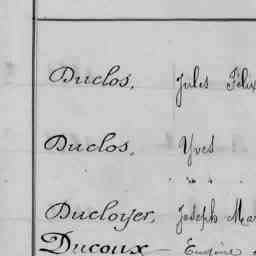 Duclos, Jules Félix
Duclos, Yves
Ducloyer, Joseph Mar
Ducoux — Eugène